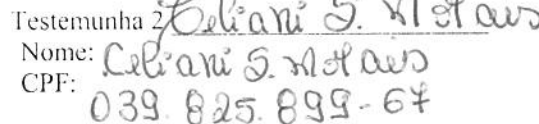 Testemunha 2 Celiani S. Motaus
Nome: Celiani S. Motaus
CPF:
039.825.899-67